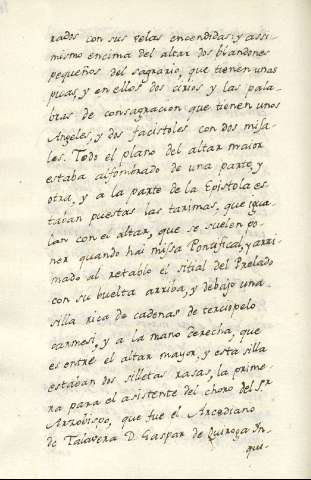 rados con sus velas encendidas: y assi-
mismo encima del altar dos blandones
pequeños del sagrario, que tienen unas
puas, y en ellos dos cirios y las pala-
bras de consagracion que tienen unos
Angeles, y dos facistoles con dos misa-
les. Todo el plano del altar maior
estaba alfombrado de una parte, y
otra, y a la parte de la Epistola es-
taban puestas las tarimas, que igua-
lan con el altar, que se suelen po-
ner quando hai missa Pontifical, y arri-
mado al retablo el sitial del Prelado
con su buelta arriba, y debajo una
silla rica de cadenas de terciopelo
carmesi, y a la mano derecha, que
es entre el altar mayor, y esta silla
estaban dos silletas rasas, la prime-
ra para el asistente del choro del Sr.
Arzobispo, que fue el Arcediano
de Talavera D. Gaspar de Quiroga In-
qui-